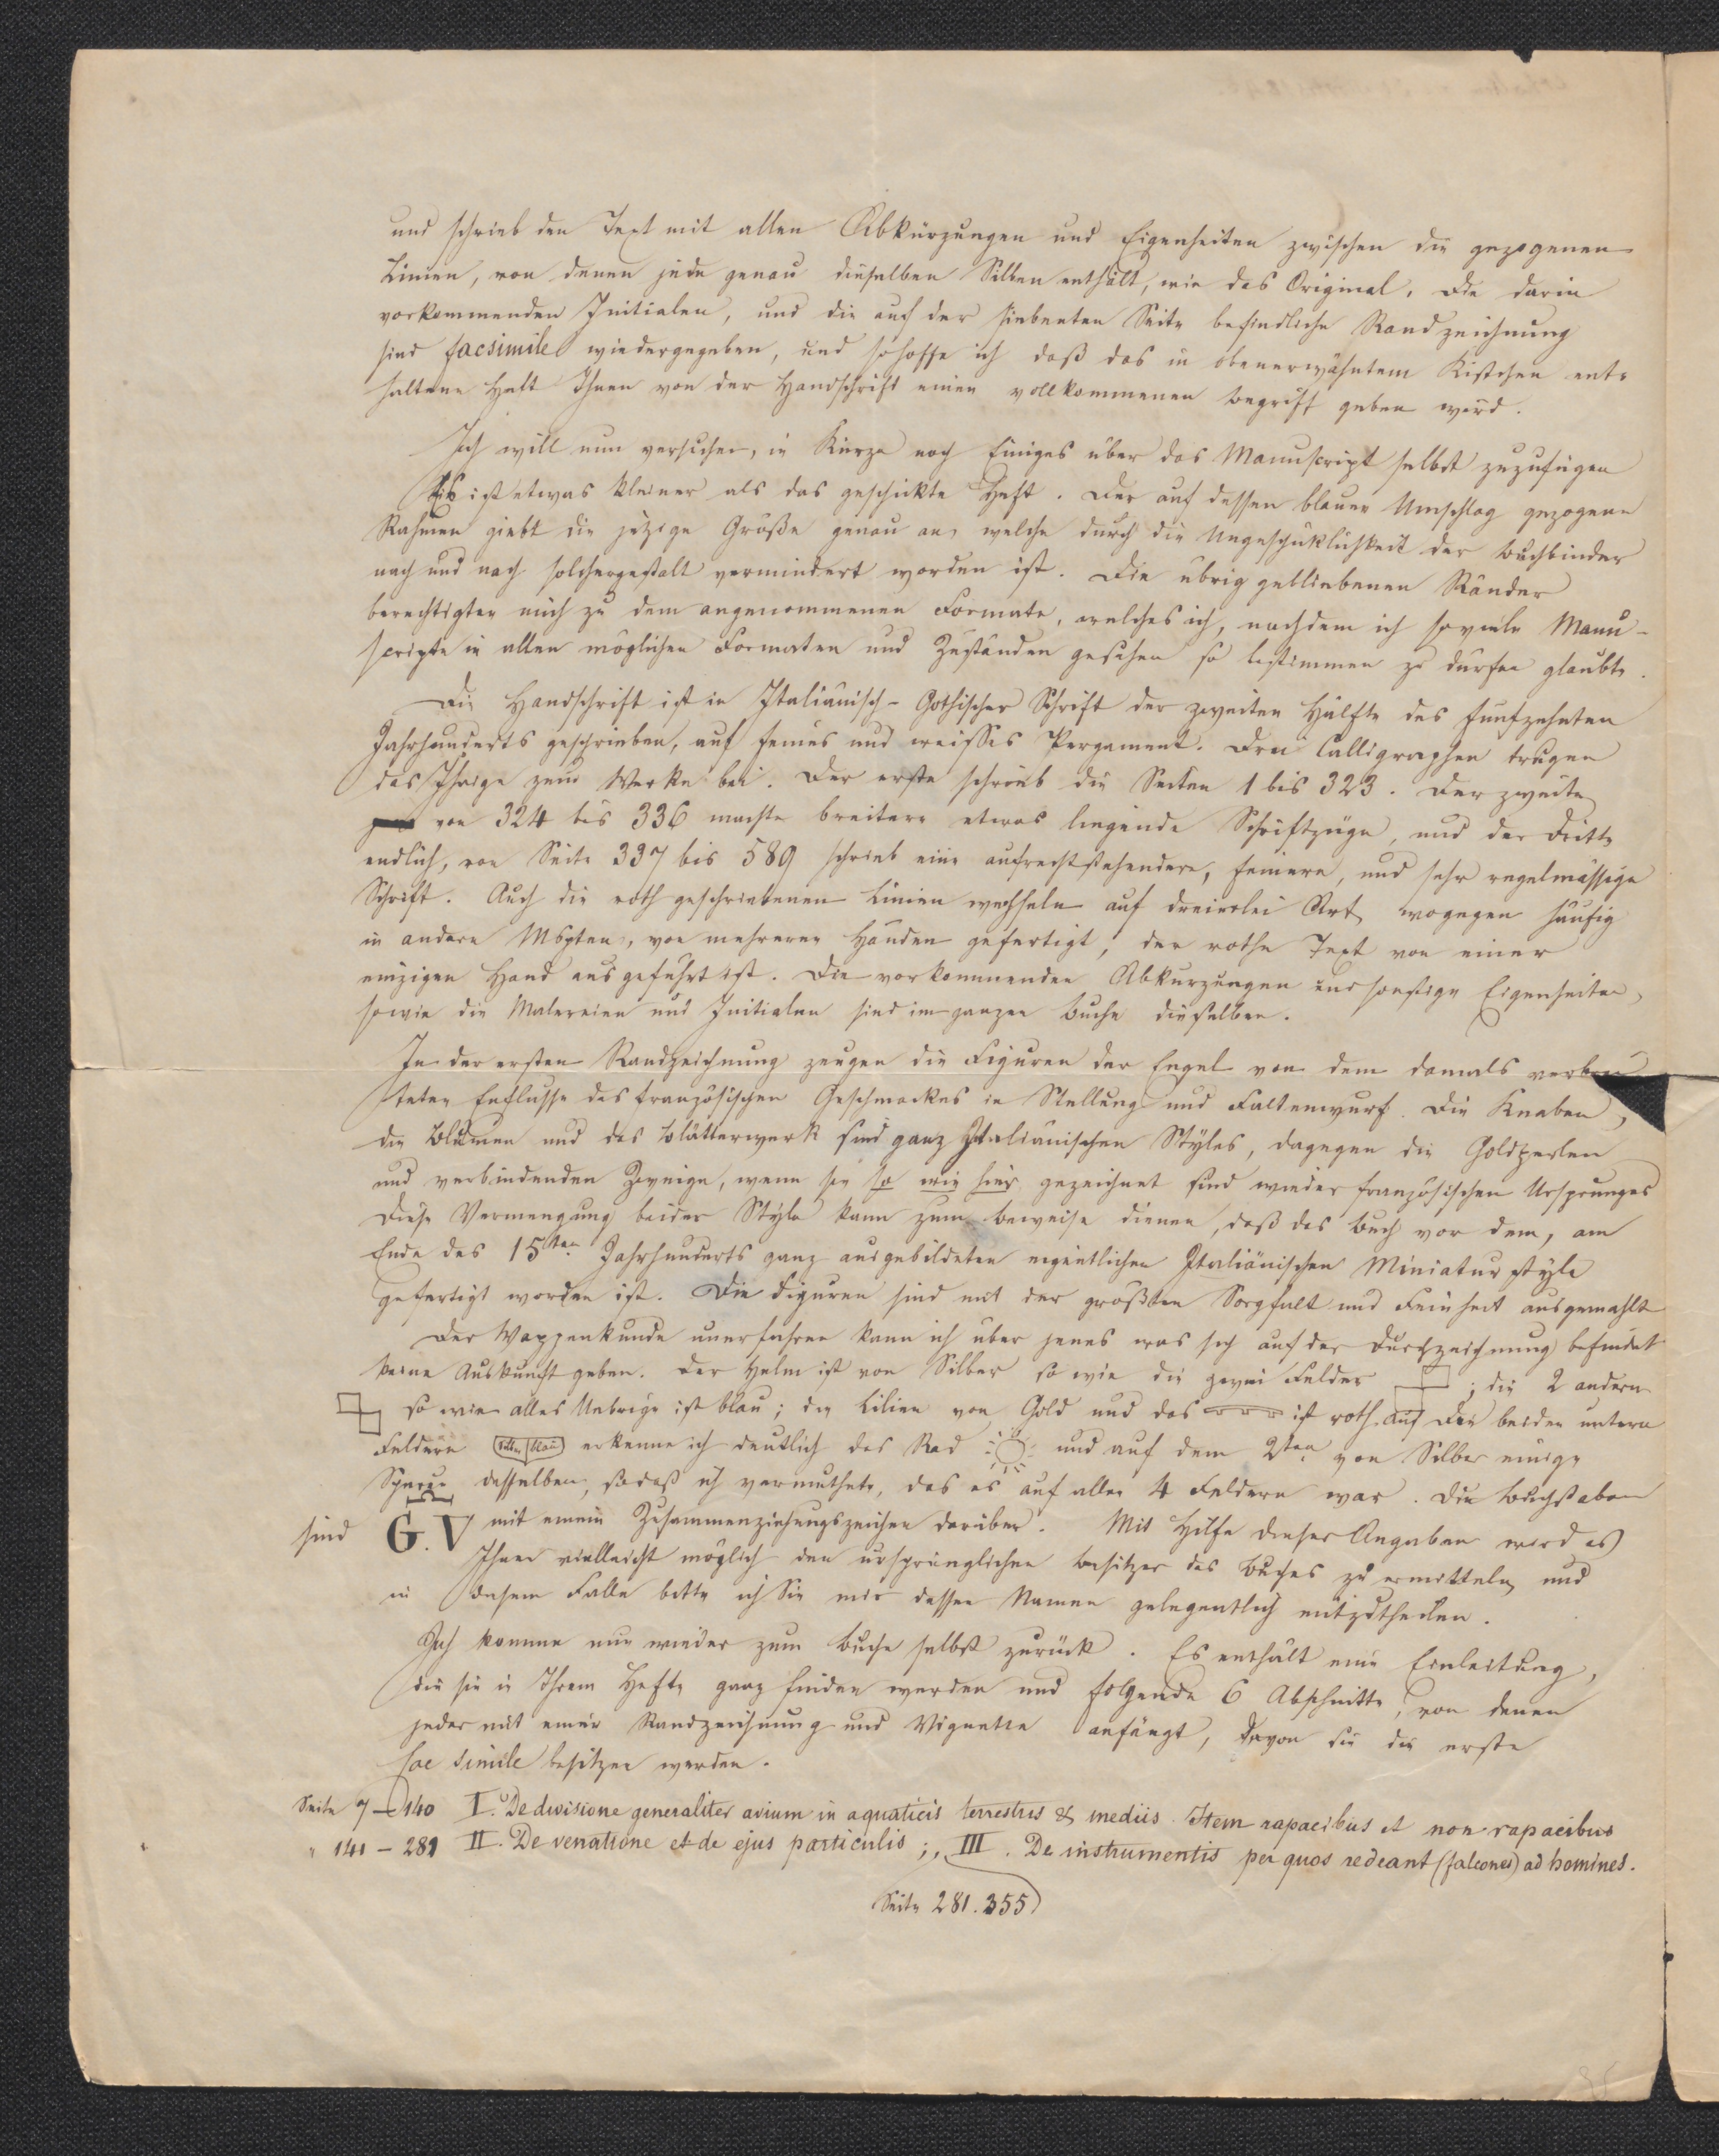 und schrieb den Text mit allen Abkürzungen und Eigenheiten zwischen die gezogenen
Linien, von denen jede genau dieselben Silben enthält, wie das Original. Die darin
vorkommenden Initialen, und die auf der siebenten Seite befindliche Randzeichnung
sind facsimile wiedergegeben, und so hoffe ich daß das in obenerwähntem Kistchen ent-
haltene Heft Ihnen von der Handschrift einen vollkommenen Begriff geben wird.
Ich will nun versuchen, in Kürze noch Einiges über das Manuscript selbst zuzufügen
Es ist etwas kleiner als das geschickte Heft. Der auf dessen blauen Umschlag gezogene
Rahmen giebt die jetzige Größe genau an, welche durch die Ungeschicklichkeit der Buchbinder
nach und nach solchergestalt vermindert worden ist. Die übrig gebliebenen Ränder
berechtigten mich zu dem angenommenen Formate, welches ich, nachdem ich so viele Manu-
scripte in allen möglichen Formaten und Zuständen gesehen so bestimmen zu dürfen glaubte.
Die Handschrift ist in Italiänisch-Gothischer Schrift der zweiten Hälfte des funfzehnten
Jahrhunderts geschrieben, auf feines und weisses Pergament. Drei Calligraphen trugen
das Ihrige zum Werke bei. Der erste schrieb die Seiten 1 bis 323. Der zweite
von 324 bis 336 machte breitere etwas liegende Schriftzüge, und der dritte
endlich, von Seite 337 bis 589 schrieb eine aufrechtstehendere, feinere, und sehr regelmässige
Schrift. Auch die roth geschriebenen Linien wechseln auf dreierlei Art, wogegen häufig
in andern Mspten, von mehreren Händen gefertigt, der rothe Text von einer
einzigen Hand ausgeführt ist. Die vorkommenden Abkürzungen und sonstige Eigenheiten,
sowie die Malereien und Initialen sind im ganzen Buche dieselben.
In der ersten Randzeichnung zeugen die Figuren der Engel von dem damals verbrei
teten Einflusse des französischen Geschmackes in Stellung und Faltenwurf. Die Knaben,
die Blumen und das Blätterwerk sind ganz Italiänischen Styles, dagegen die Goldperlen
und verbindenden Zweige, wenn sie so wie hier gezeichnet sind wieder französischen Ursprunges
Diese Vermengung beider Style kann zum Beweise dienen, daß das Buch vor dem, am
Ende des 15ten Jahrhunderts ganz ausgebildeten eigentlichen Italiänischen Miniaturstyle
gefertigt worden ist. Die Figuren sind mit der größten Sorgfalt und Feinheit ausgemahlt
Der Wappenkunde unerfahren kann ich über jenes was sich auf der Durchzeichnung befindet
keine Auskunft geben. Der Helm ist von Silber so wie die zwei Felder ; die 2 andern
so wie alles Uebrige ist blau; die Lilien von Gold und das ist roth. Auf den beiden untern
Feldern silber blau erkenne ich deutlich das Rad und auf dem 2ten von Silber einige
Spuren desselben, sodaß ich vermuthete, das es auf allen 4 Feldern war. Die Buchstaben
sind G.V mit einem Zusammenziehungszeichen darüber. Mit Hilfe dieser Angaben wird es
Ihnen vielleicht möglich den ursprünglichen Besitzer des Buches zu ermitteln und
in diesem Falle bitte ich Sie mir dessen Namen gelegentlich mitzutheilen.
Ich komme nun wieder zum Buche selbst zurück. Es enthält eine Einleitung,
die sie in Ihrem Hefte ganz finden werden und folgende 6 Abschnitte, von denen
jeder mit einer Randzeichnung und Vignette anfängt, davon sie die erste
fac simile besitzen werden.
Seite 7–140 I. De divisione generaliter avium in aquaticis terrestris & mediis. Item rapacibus et non rapacibus
" 141 – 281 II. De venatione et de ejus particulis ;, III. De instrumentis per quos redeant (falcones) ad homines.
Seite 281.355